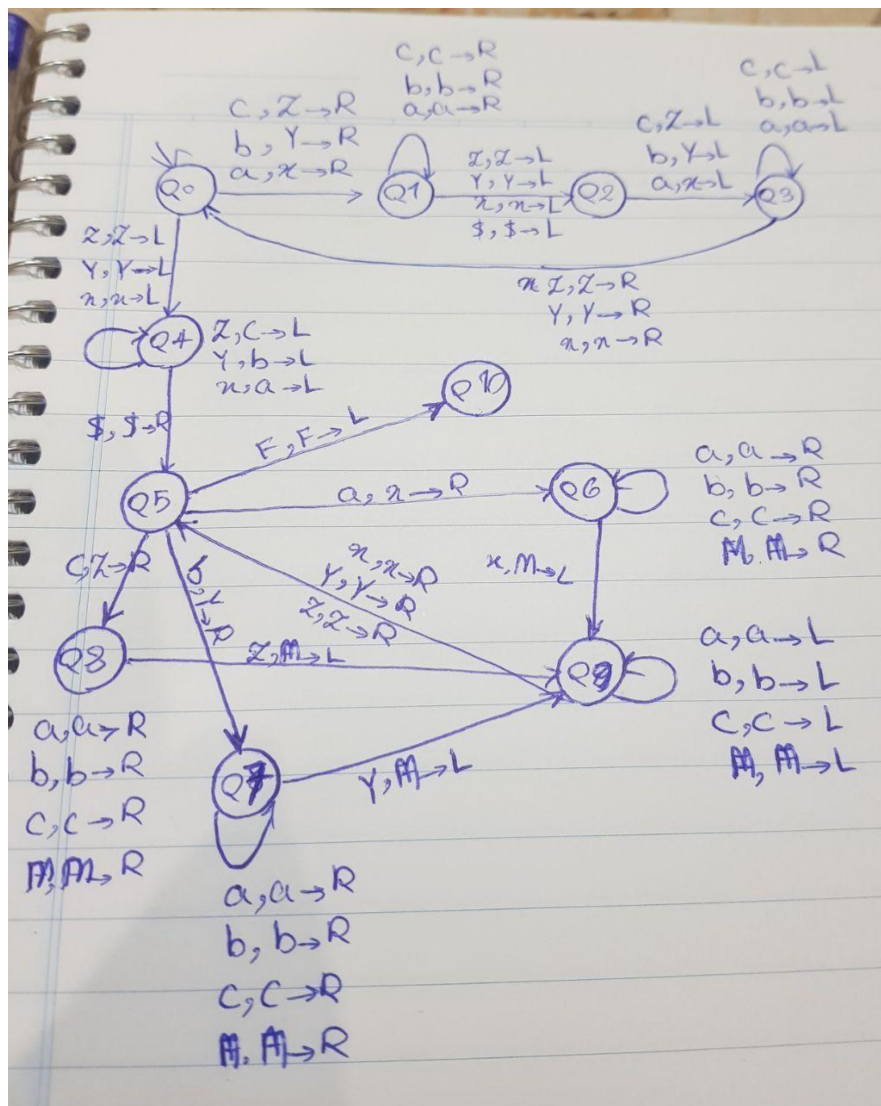 c, c→R
b, b→R
a, a→R
c, c→L
b, b→L
a, a→L
c, Z→R
b, Y→R
a, x→R
c, Z→L
b, Y→L
a, x→L
Z, Z→L
Y, Y→L
x, x→L
$, $→L
Q0
Q1
Q2
Q3
Z, Z→L
Y, Y→L
x, x→L
x Z, Z→R
Y, Y→R
x, x→R
Q4
Z, c→L
Y, b→L
x, a→L
$, $→R
F, F→L
Q10
Q5
a, x→R
Q6
a, a→R
b, b→R
c, c→R
M, M→R
c, Z→R
b, Y→R
x, x→R
Y, Y→R
Z, Z→R
x, M→L
Q8
Z, M→L
Q9
a, a→L
b, b→L
c, c→L
M, M→L
a, a→R
b, b→R
c, c→R
M, M→R
Q7
Y, M→L
a, a→R
b, b→R
c, c→R
M, M→R